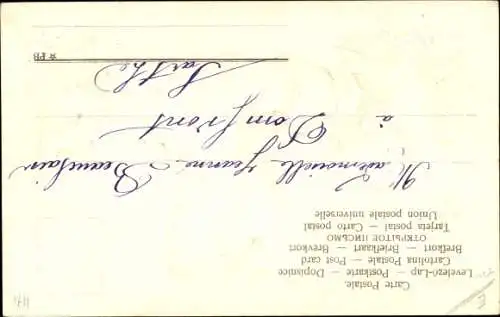 Carte Postale.
Levelezö-Lap — Postkarte — Dopisnice
Cartolina Postale — Post card
Brefkort — Briefkaart — Brevkort
ОТКРЫТОЕ ПИСЬМО
Tarjeta postal — Carto postal
Union postale universelle
Mademoiselle Jeanne Beauclair
à Domfront
Sarthe
☆ PB